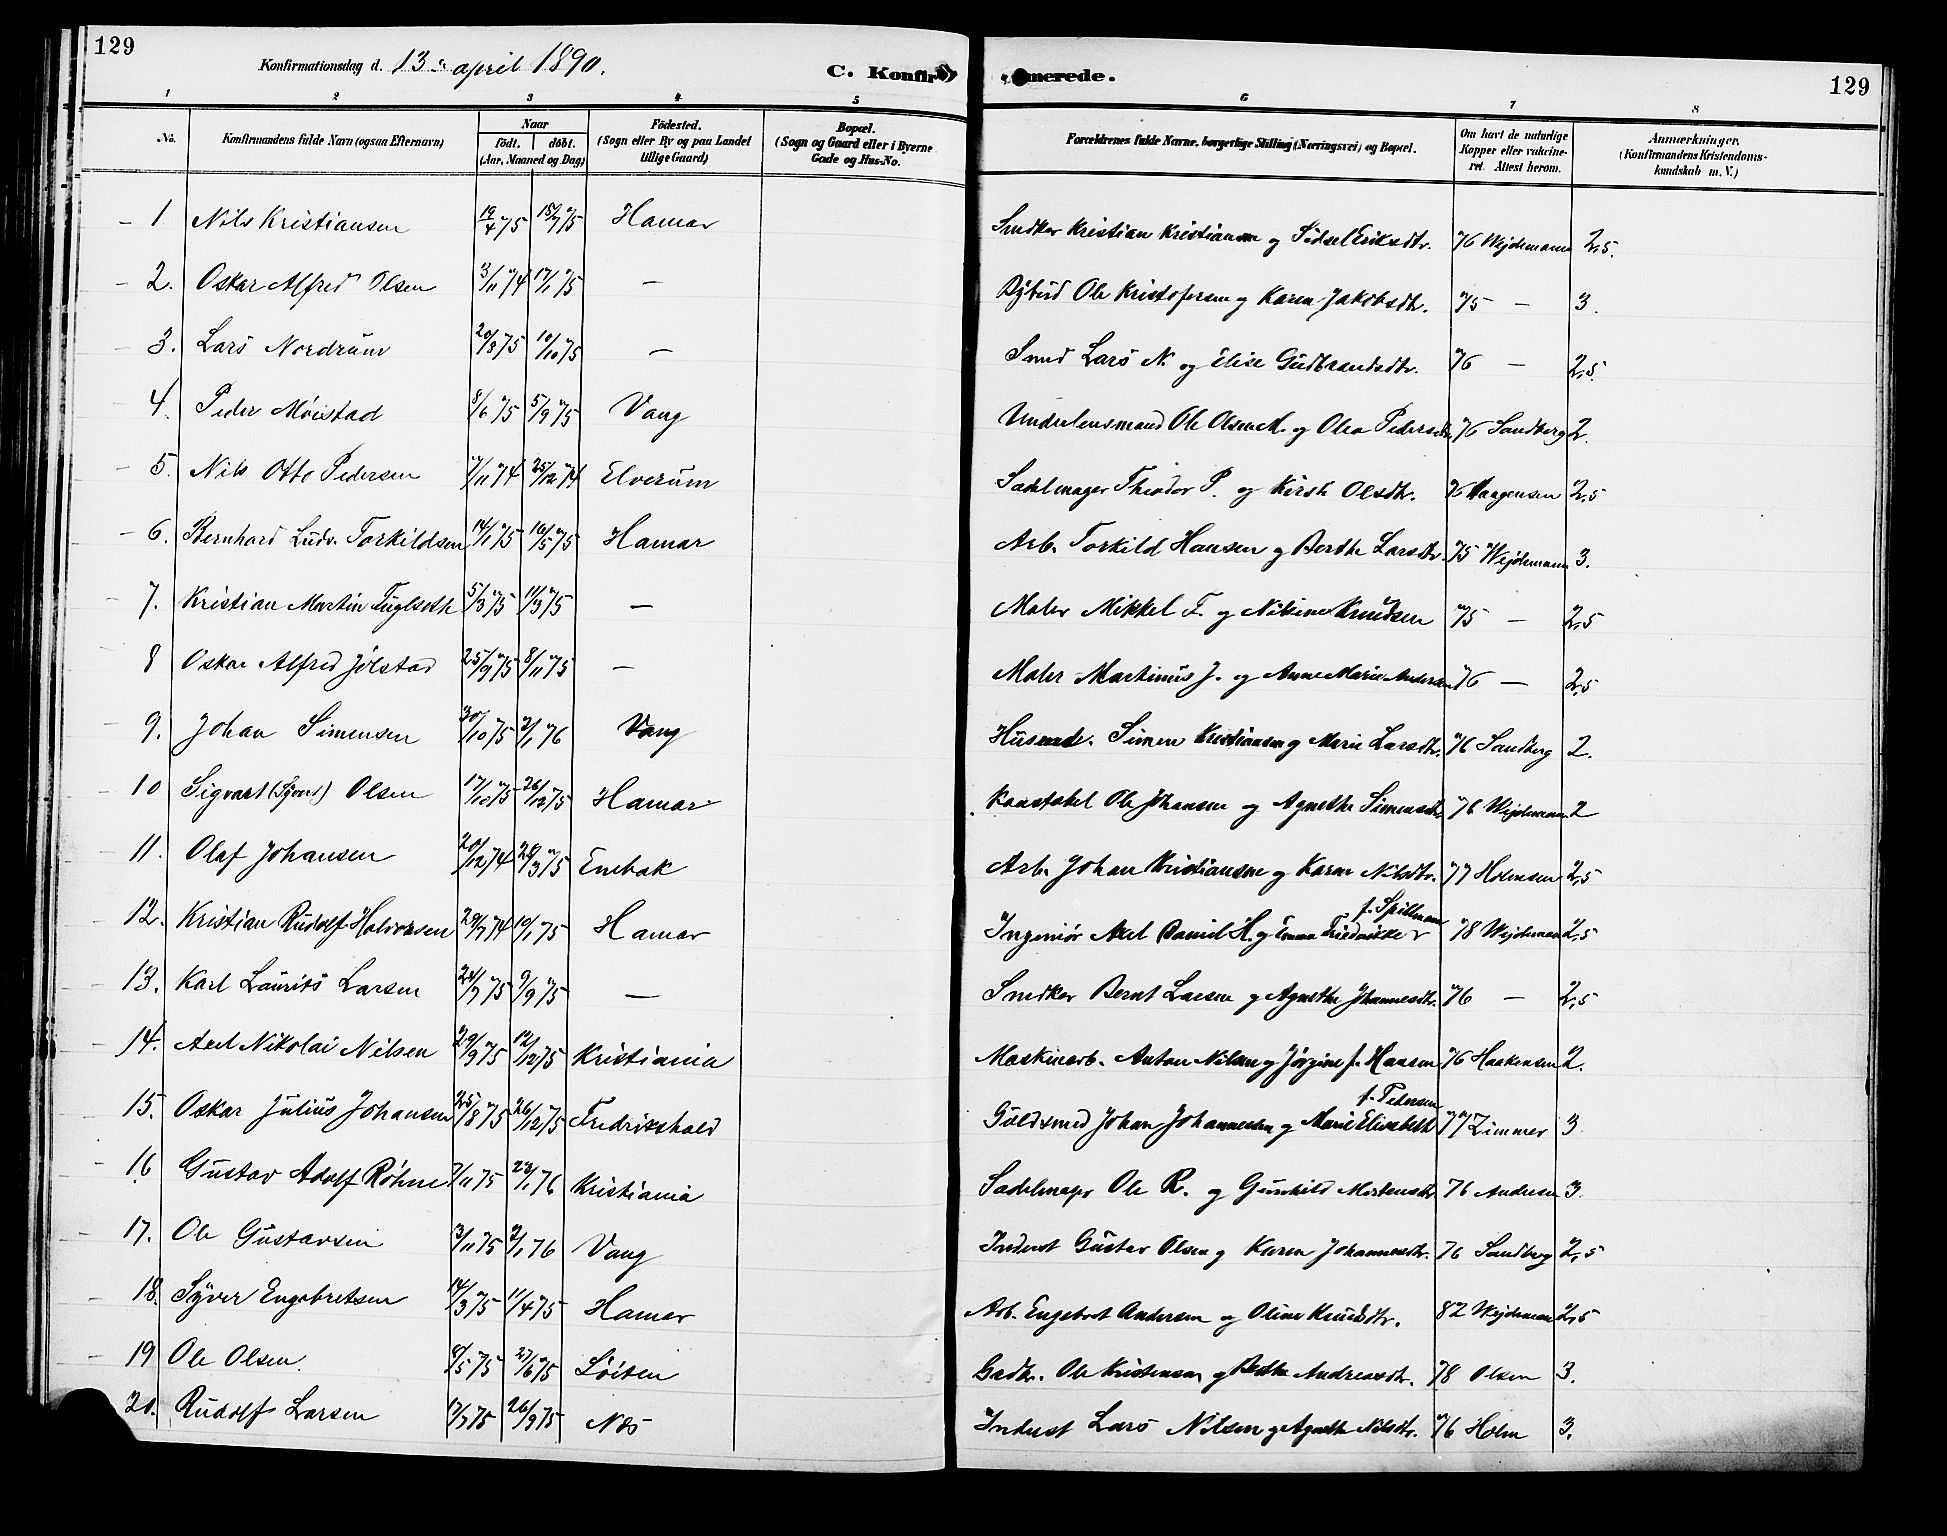 129
Konfirmationsdag d. 13. april 1890.
C. Konfir merede.
129
1 2 3 4 5 6 7 8
No.
Konfirmandens fulde Navn (ogsaa Efternavn)
Naar
født. døbt.
(Aar, Maaned og Dag)
Fødested.
(Sogn eller By og paa Landet
tillige Gaard)
Bopæl.
(Sogn og Gaard eller i Byerne
Gade og Hus-No.
Forældrenes fulde Navne, borgerlige Stilling (Næringsvei) og Bopæl.
Om havt de naturlige
Kopper eller vakcine-
ret. Attest herom.
Anmerkninger.
(Konfirmandens Kristendoms-
kundskab m. V.)
1 Nils Kristiansen 19/4 75 18/7 75 Hamar Snedker Kristian Kristiansen og Sidsel Eriksdtr. 76 Wejdemann 2,5.
2. Oskar Alfred Olsen 3/11 74 17/1 75 — Ole Kristofersen og Karen Jakobsdtr. 75 — 3.
3. Lars Nordrum 20/8 75 10/10 75 — Smed Lars N. og Elise Gudbrandsdtr. 76 — 2,5.
4. Peder Møistad 8/6 75 5/9 75 Vang Underlensmand Ole Olsen M. og Olea Pedersdtr 76 Sandberg 2.
5. Nils Otto Pedersen 7/11 74 25/12 74 Elverum Sadelmager Theodor P. og Kirsti Olsdtr. 76 Haagensen 2,5
6. Bernhard Ludv. Torkildsen 14/1 75 16/5 75 Hamar Arb. Torkild Hansen og Berthe Larsdtr. 75 Wejdemann 3.
7. Kristian Martin Fuglseth 5/3 75 11/3 75 — Maler Mikkel F. og Nilsine Knudsen 75 — 2,5
8 Oskar Alfred Jølstad 25/9 75 8/11 75 — Maler Martinus J. og Anne Marie Andersen 76 — 2,5
9. Johan Simensen 30/10 75 2/1 76 Vang Husmd. Simen Kristiansen og Marie Larsdtr. 76 Sandberg 2.
10 Sigvart (Syvert) Olsen 17/10 75 26/12 75 Hamar Konstabel Ole Johansen og Agnethe Simensdtr 76 Wejdemann 2
11. Olaf Johansen 20/12 74 28/3 75 Enebak Arb. Johan Kristiansen og Karen Nilsdtr. 77 Holmsen 2,5
12. Kristian Rudolf Halvorsen 29/7 74 10/1 75 Hamar Ingeniør Axel Daniel H. og Emma Fredrikke f. Spillmann 78 Wejdeman 2,5
13. Karl Laurits Larsen 28/7 75 9/9 75 — Snedker Bernt Larsen og Agnethe Johannesdtr. 76 — 2,5
14. Axel Nikolai Nilsen 29/9 75 12/12 75 Kristiania Maskinarb. Anton Nilsen og Jørgine f. Hansen 76 Haakensen 2.
15. Oskar Julius Johansen 25/8 75 26/12 75 Fredrikshald Guldsmed Johan Johannesen og Marie Elisabeth f. Pedersen 77 Zimmer 3
16. Gustav Adolf Røhne 7/11 75 23/1 76 Kristiania Sadelmager Ole R. og Gunhild Mortensdtr 76 Andersen 3
17. Ole Gustavsen 3/11 75 2/1 76 Vang Inderst Gustav Olsen og Karen Johannesdtr. 76 Sandberg 2,5
18. Syver Engebretsen 14/3 75 11/4 75 Hamar Arb. Engebret Andersen og Oline Knudsdtr. 82 Wejdeman 2,5
19 Ole Olsen. 8/5 75 27/6 75 Løiten Gadbr. Ole Kristensen og Berthe Andreasdtr. 78 Olsen 3.
20. Rudolf Larsen 17/7 75 26/9 75 Næs Inderst Lars Nilsen og Agnethe Nilsdtr. 76 Holm 3.